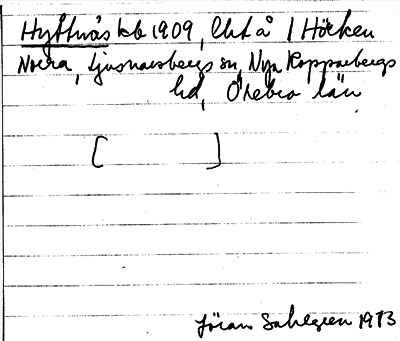 Hyttnäs kb 1909, lht å 1 Hörken
Norra, Ljusnarsbergs sn, Nya Kopparbergs
hd, Örebro län
[ ]
Jöran Sahlgren 1913